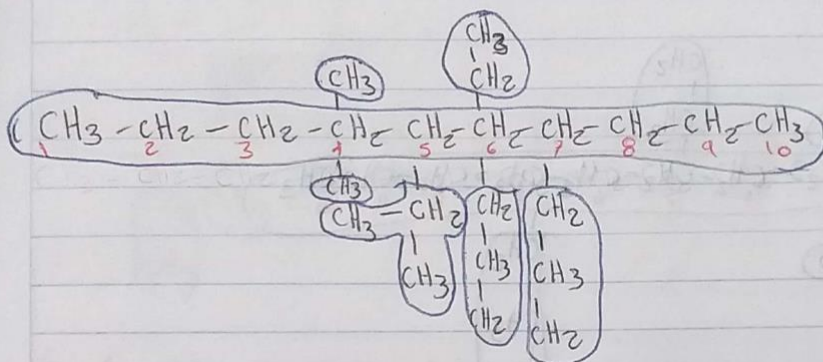 CH3
CH2
CH3
CH3 - CH2 - CH2 - CH2 CH2 - CH2 - CH2 - CH2 - CH2 - CH3
1 2 3 4 5 6 7 8 9 10
CH3
CH3 - CH2 CH2 CH2
CH3 CH3 CH3
CH2 CH2